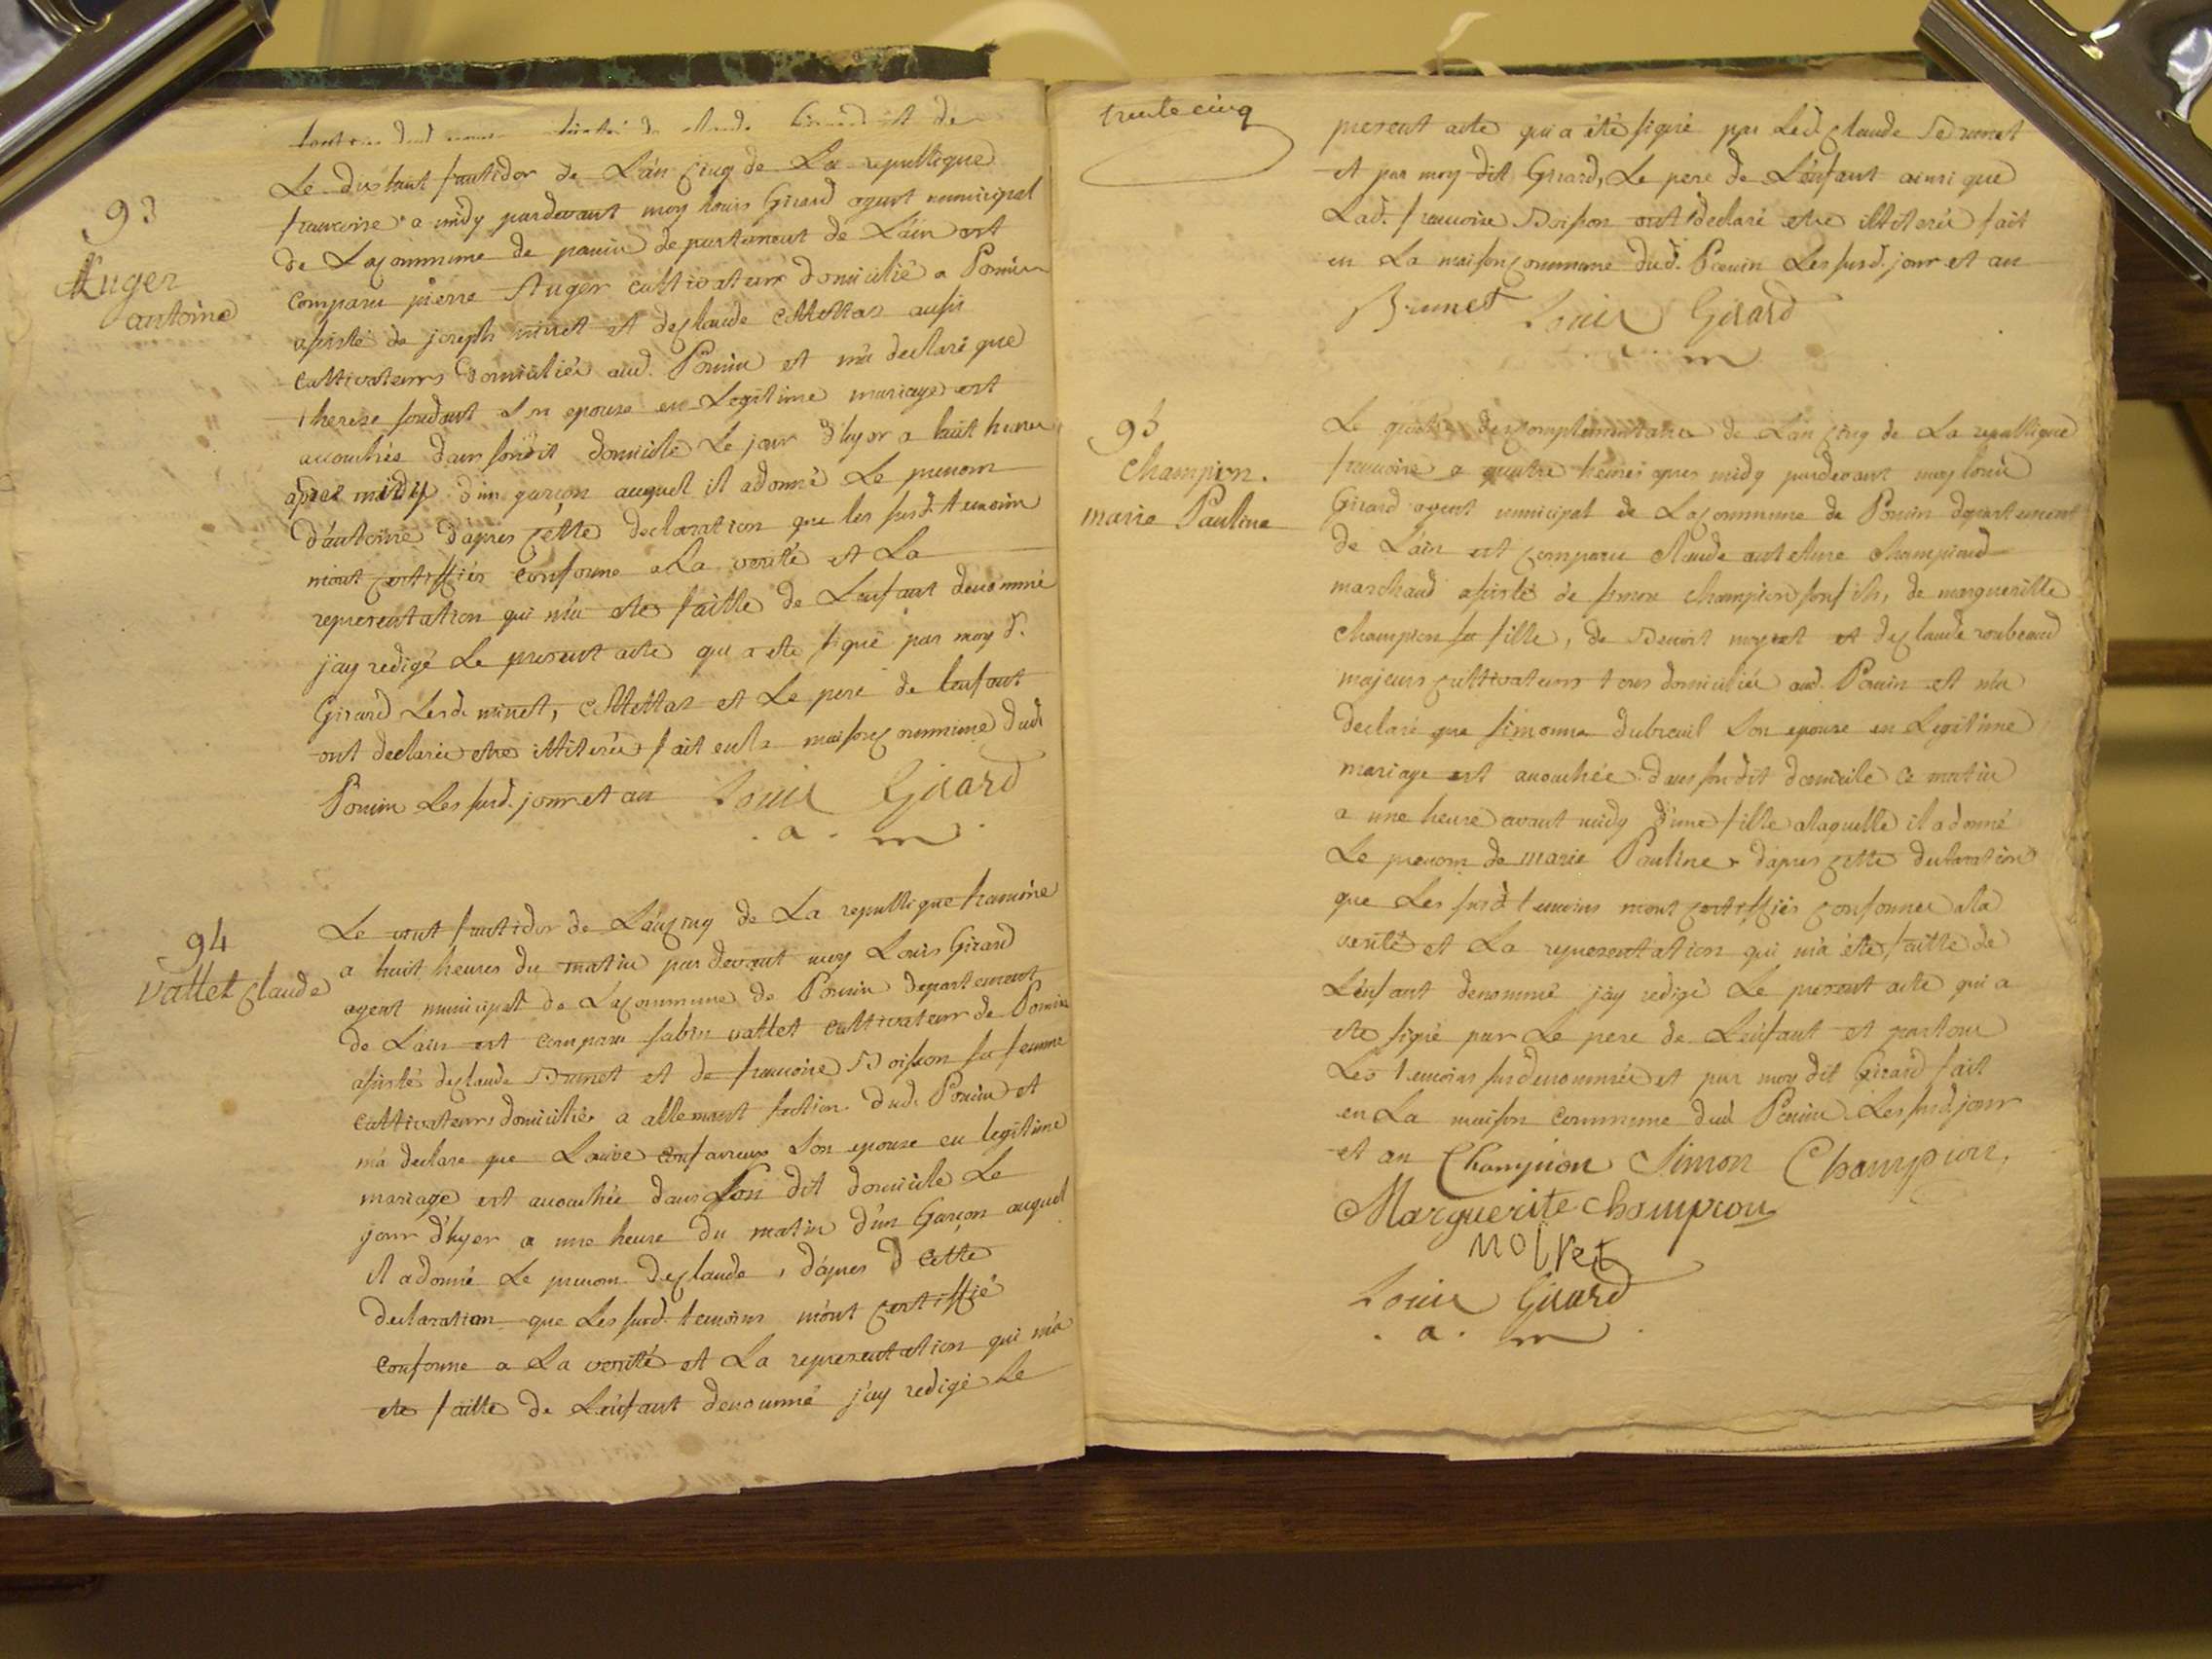 93
Auger
antoine
Le dix huit fructidor de L'an cinq de La republique
francoise a midy pardevant moy Louis Girard agent municipal
de La commune de poncin departement de L'ain est
comparu pierre Auger cultivateur domicilié a Poncin
assisté de joseph minet et de claude aussi
cultivateurs domiciliés aud. Poncin et m'a declaré que
therese fondant son epouse en Legitime mariage est
accouchée dans sondit domicile Le jour d'hyer a huit heures
aprés midy d'un garçon auquel il a donné Le prenom
d'antoine d'apres cette declaration que les susd. temoins
m'ont certiffiés conforme a La verité et La
representation qui m'a eté faitte de L'enfant denommé
j'ay redigé Le present acte qui a eté signé par moy d.
Girard Lesd. minet, et Le pere de l'enfant
ont declarés etre illiterés fait en la maison commune dud.
Poncin Les susd. jour et an Louis Girard
. a . m .
94
Vallet claude
Le vint fructidor de L'an cinq de La republique francoise
a huit heures du matin par devant moy Louis Girard
agent municipal de La commune de Poncin departement
de L'ain est comparu sabin vallet cultivateur de Poncin
assisté de claude Brunet et de francoise Boisson sa femme
cultivateurs domiciliés a allement section dud. Poncin et
m'a declaré que Louise son epouse en legitime
mariage est accouchée dans son dit domicile Le
jour d'hyer a une heure du matin d'un Garçon auquel
il a donné Le prenom de claude, d'apres d cette
declaration que Les susd. temoins m'ont certiffié
conforme a La verité et La representation qui m'a
eté faitte de L'enfant denommé j'ay redigé Le
trente cinq
present acte qui a été signé par Led. claude Brunet
et par moy dit Girard, Le pere de L'enfant ainsi que
Lad. francoise Boisson ont declaré etre illiterés fait
en La maison commune dud. Poncin Les susd. jour et an
Brunet Louis Girard
a m
95
Champion.
marie Pauline
Le jour des complementaires de L'an cinq de La republique
francoise a quatre heures apres midy pardevant moy Louis
Girard agent municipal de La commune de Poncin departement
de L'ain est comparu Claude antelme Champion
marchand assisté de simon champion son fils, de margueritte
champion sa fille, de Benoit moyret et de claude
majeurs cultivateurs tous domiciliés aud. Poncin et m'a
declaré que simonne dubreuil son epouse en Legitime
mariage est accouchée dans sondit domicile ce matin
a une heure avant midy d'une fille a laquelle il a donné
Le prenom de marie Pauline d'apres cette declaration
que Les susd. temoins m'ont certiffiés conforme a la
verité et La representation qui m'a été faitte de
L'enfant denommé j'ay redigé Le present acte qui a
eté signé par Le pere de L'enfant et par tous
Les temoins susdenommés et par moy dit Girard fait
en La maison commune dud. Poncin Les susd. jour
et an Champion Simon Champion,
Marguerite Champion
Louis Girard
. a . m .